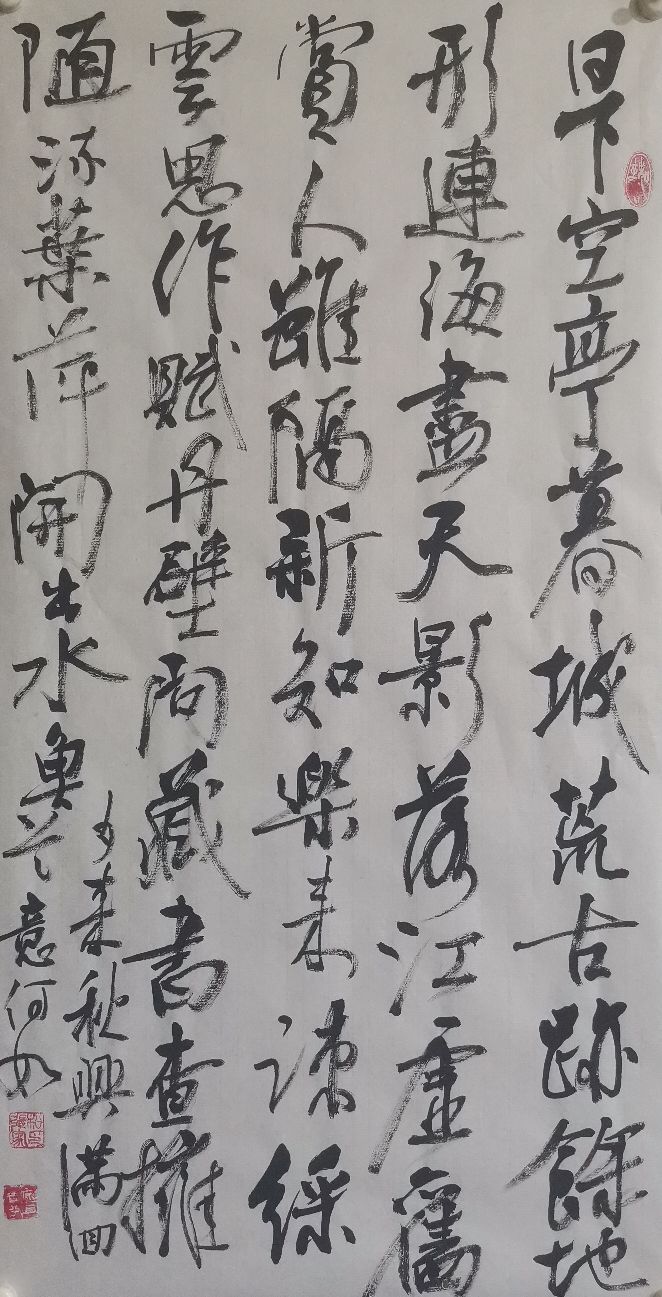 日下空亭暮城荒古跡餘地
形連海盡天影落江虛舊
賞人雖隔新知樂未疎綵
雲思作賦丹壁尚藏書查擁
隨流葉萍開出水魚
夕来秋興滿回
首意何如